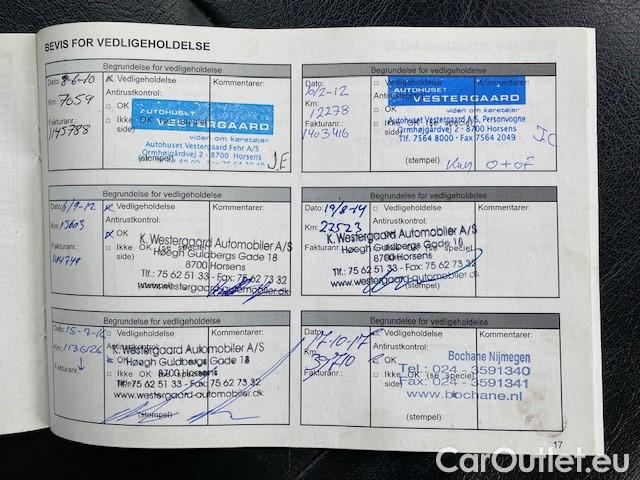 BEVIS FOR VEDLIGEHOLDELSE
Begrundelse for vedligeholdelse
Dato: 8-6-10
Vedligeholdelse
Kommentarer:
Km: 7059
Antirustkontrol:
OK
Fakturanr.: 1145788
Ikke OK (se speciel side)
AUTOHUSET
VESTERGAARD
viden om køretøjer
Autohuset Vestergaard Fehr A/S
Ormhøjgårdvej 2 - 8700 Horsens
(stempel)
J.E
Begrundelse for vedligeholdelse
Dato: 10/2-12
Vedligeholdelse
Kommentarer:
Km: 12278
Antirustkontrol:
OK
Fakturanr.: 1403416
Ikke OK (se speciel side)
AUTOHUSET
VESTERGAARD
viden om køretøjer
Autohuset Vestergaard A/S, Personvogne
Ormhøjgårdvej 2 - 8700 Horsens
Tlf. 7564 8000 · Fax 7564 2049
(stempel)
Kun o+oF
Begrundelse for vedligeholdelse
Dato: 6/9-12
Vedligeholdelse
Kommentarer:
Km: 13603
Antirustkontrol:
OK
Fakturanr.:
Ikke OK (se speciel side)
K. Westergaard Automobiler A/S
Høegh Guldbergs Gade 18
8700 Horsens
Tlf.: 75 62 51 33 - Fax: 75 62 73 32
www.westergaard-automobiler.dk
(stempel)
Begrundelse for vedligeholdelse
Dato: 19/8-14
Vedligeholdelse
Kommentarer:
Km: 22523
Antirustkontrol:
OK
Fakturanr.:
Ikke OK (se speciel side)
K. Westergaard Automobiler A/S
Høegh Guldbergs Gade 18
8700 Horsens
Tlf.: 75 62 51 33 - Fax: 75 62 73 32
www.westergaard-automobiler.dk
(stempel)
Begrundelse for vedligeholdelse
Dato:
Vedligeholdelse
Kommentarer:
Km:
Antirustkontrol:
OK
Fakturanr.:
Ikke OK (se speciel side)
K. Westergaard Automobiler A/S
Høegh Guldbergs Gade 18
8700 Horsens
Tlf.: 75 62 51 33 - Fax: 75 62 73 32
www.westergaard-automobiler.dk
(stempel)
Begrundelse for vedligeholdelse
17-10-17
Vedligeholdelse
Kommentarer:
Km:
Antirustkontrol:
OK
Fakturanr.:
Ikke OK (se speciel side)
Bochane Nijmegen
Tel.: 024 - 3591340
Fax: 024 - 3591341
www.bochane.nl
(stempel)
17
CarOutlet.eu